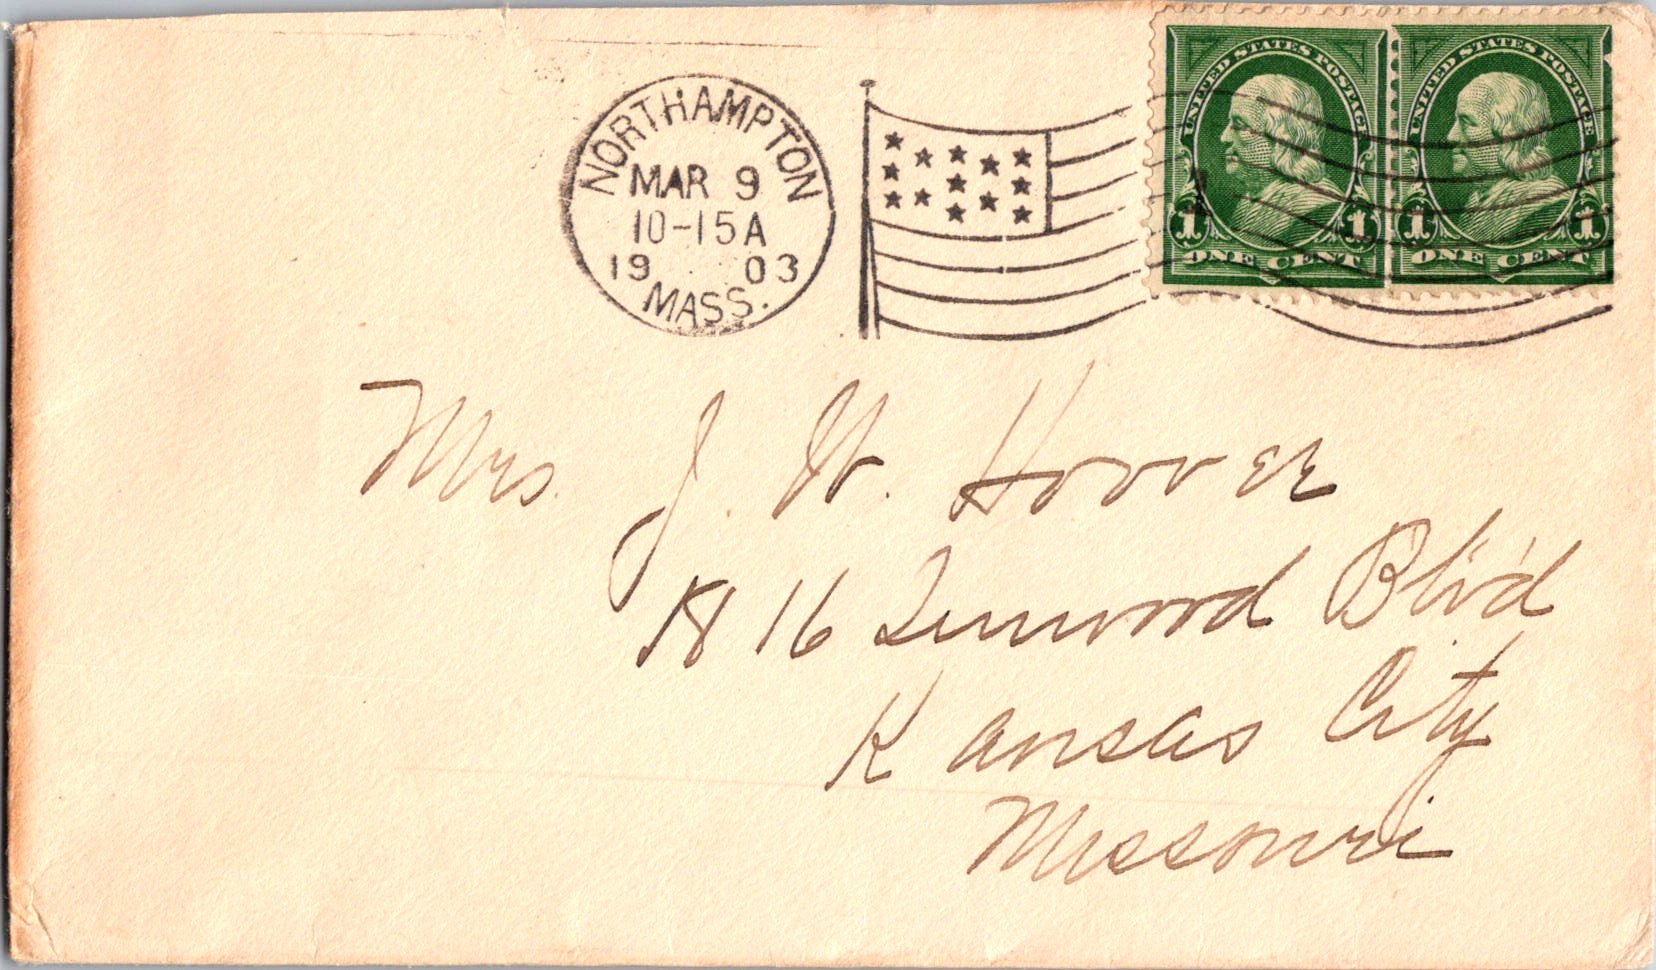 UNITED STATES POSTAGE UNITED STATES POSTAGE
1 1 1 1
ONE CENT ONE CENT
NORTHAMPTON
MAR 9
10-15A
19 03
MASS.
Mrs. J. W. Hoover
1816 Linwood Blv'd
Kansas City
Missouri